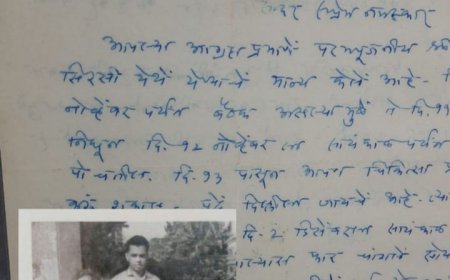 सादर सप्रेम नमस्कार
आपल्या आग्रहाप्रमाणे परमपूजनीय श्री
सिरसी येथें येण्याचें मान्य केलें आहे-
नोव्हेंबर पर्यंत बैठक असल्यामुळें ते दि. ११
निघून दि. १२ नोव्हेंबर ला सायंकाळ पर्यंत
पोचतील. दि. १३ पासून आपण चिकित्सा
करूं शकाल. पुढें दिल्लीला जायचें आहे-
दि. २ डिसेंबरला सायंकाळ
फार चांगलें